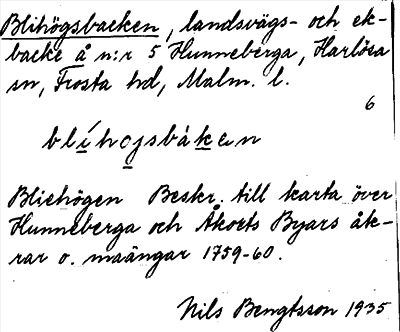 Blihögsbacken, landsvägs- och ek-
backe å n:r 5 Hunneberga, Harlösa
sn, Frosta hd, Malm. l.
6
blíhojsbàken
Bliehögen Beskr. till karta över
Hunneberga och Åkorts Byars åk-
rar o. maängar 1759-60.
Nils Bengtsson 1935